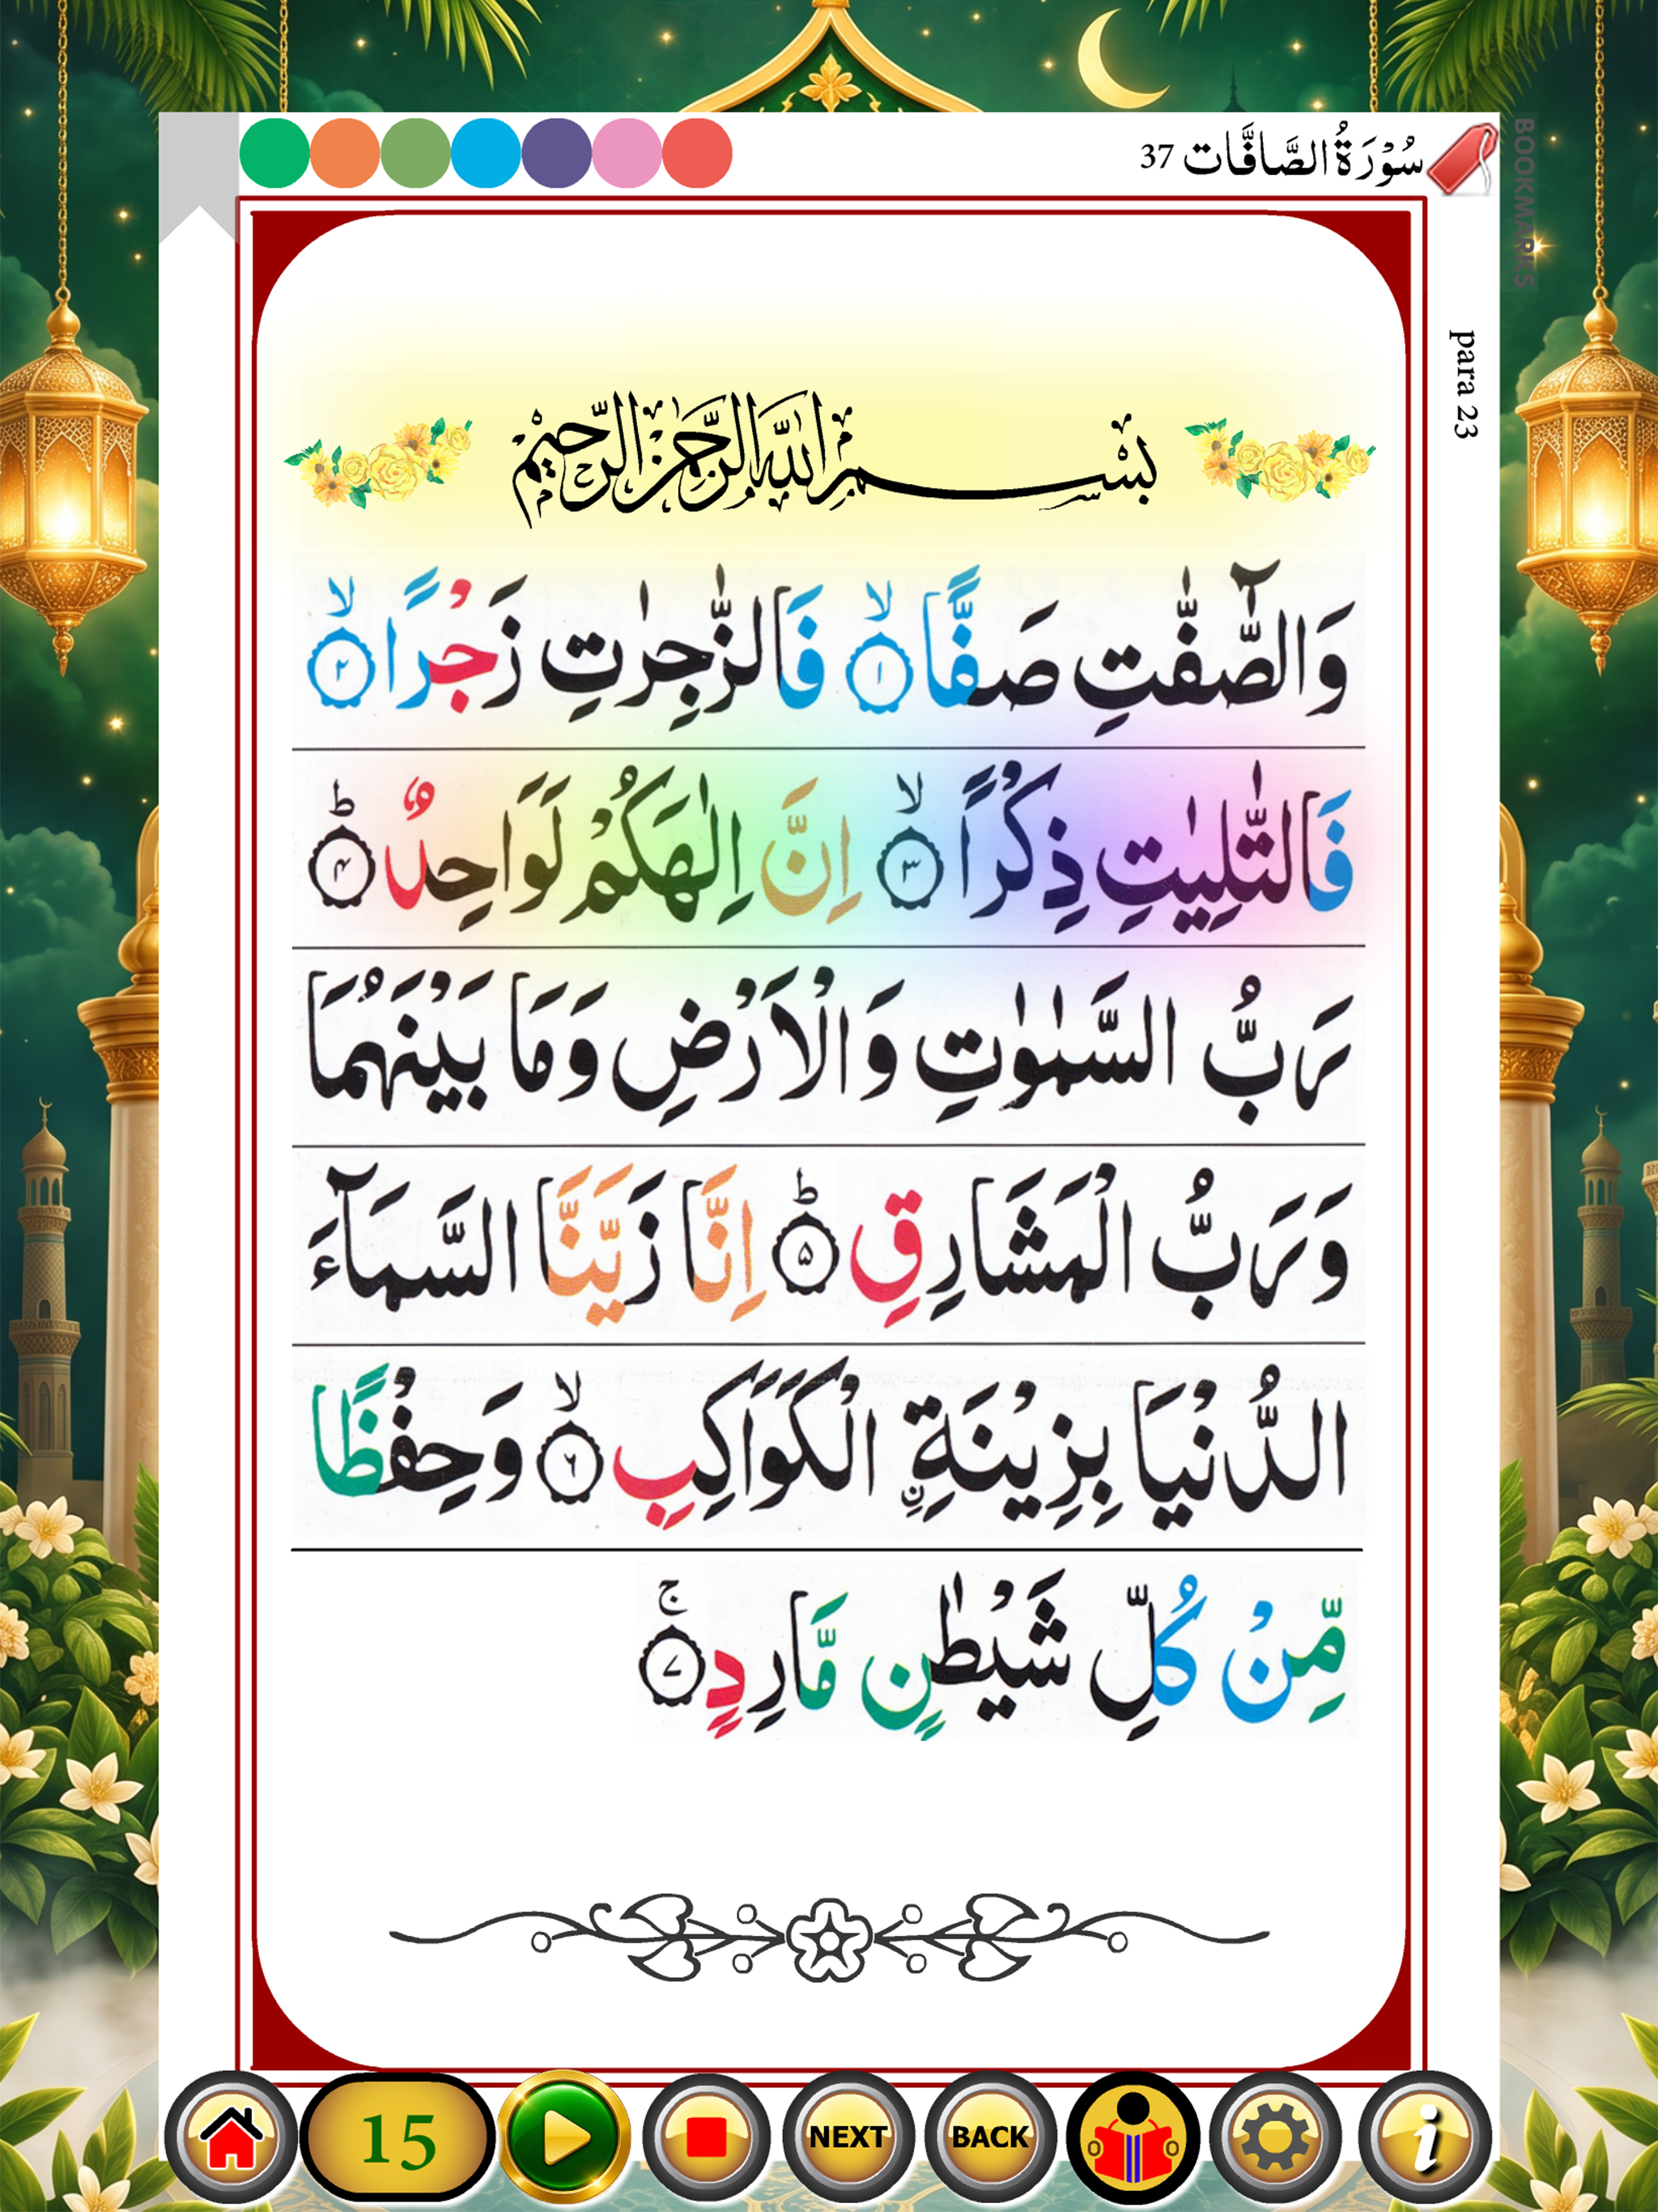 سُوْرَةُ الصَّافَّات 37
BOOKMARKS
para 23
بِسْمِ اللهِ الرَّحْمٰنِ الرَّحِيْمِ
وَالصّٰٓفّٰتِ صَفًّا ۙ﴿۱﴾ فَالزّٰجِرٰتِ زَجْرًا ۙ﴿۲﴾
فَالتّٰلِيٰتِ ذِكْرًا ۙ﴿۳﴾ اِنَّ اِلٰهَكُمْ لَوَاحِدٌ ؕ﴿۴﴾
رَبُّ السَّمٰوٰتِ وَالْاَرْضِ وَمَا بَيْنَهُمَا
وَرَبُّ الْمَشَارِقِ ؕ﴿۵﴾ اِنَّا زَيَّنَّا السَّمَآءَ
الدُّنْيَا بِزِيْنَةِ ِ۟نِ الْكَوَاكِبِ ۙ﴿۶﴾ وَحِفْظًا
مِّنْ كُلِّ شَيْطٰنٍ مَّارِدٍ ۚ﴿۷﴾
15 NEXT BACK i